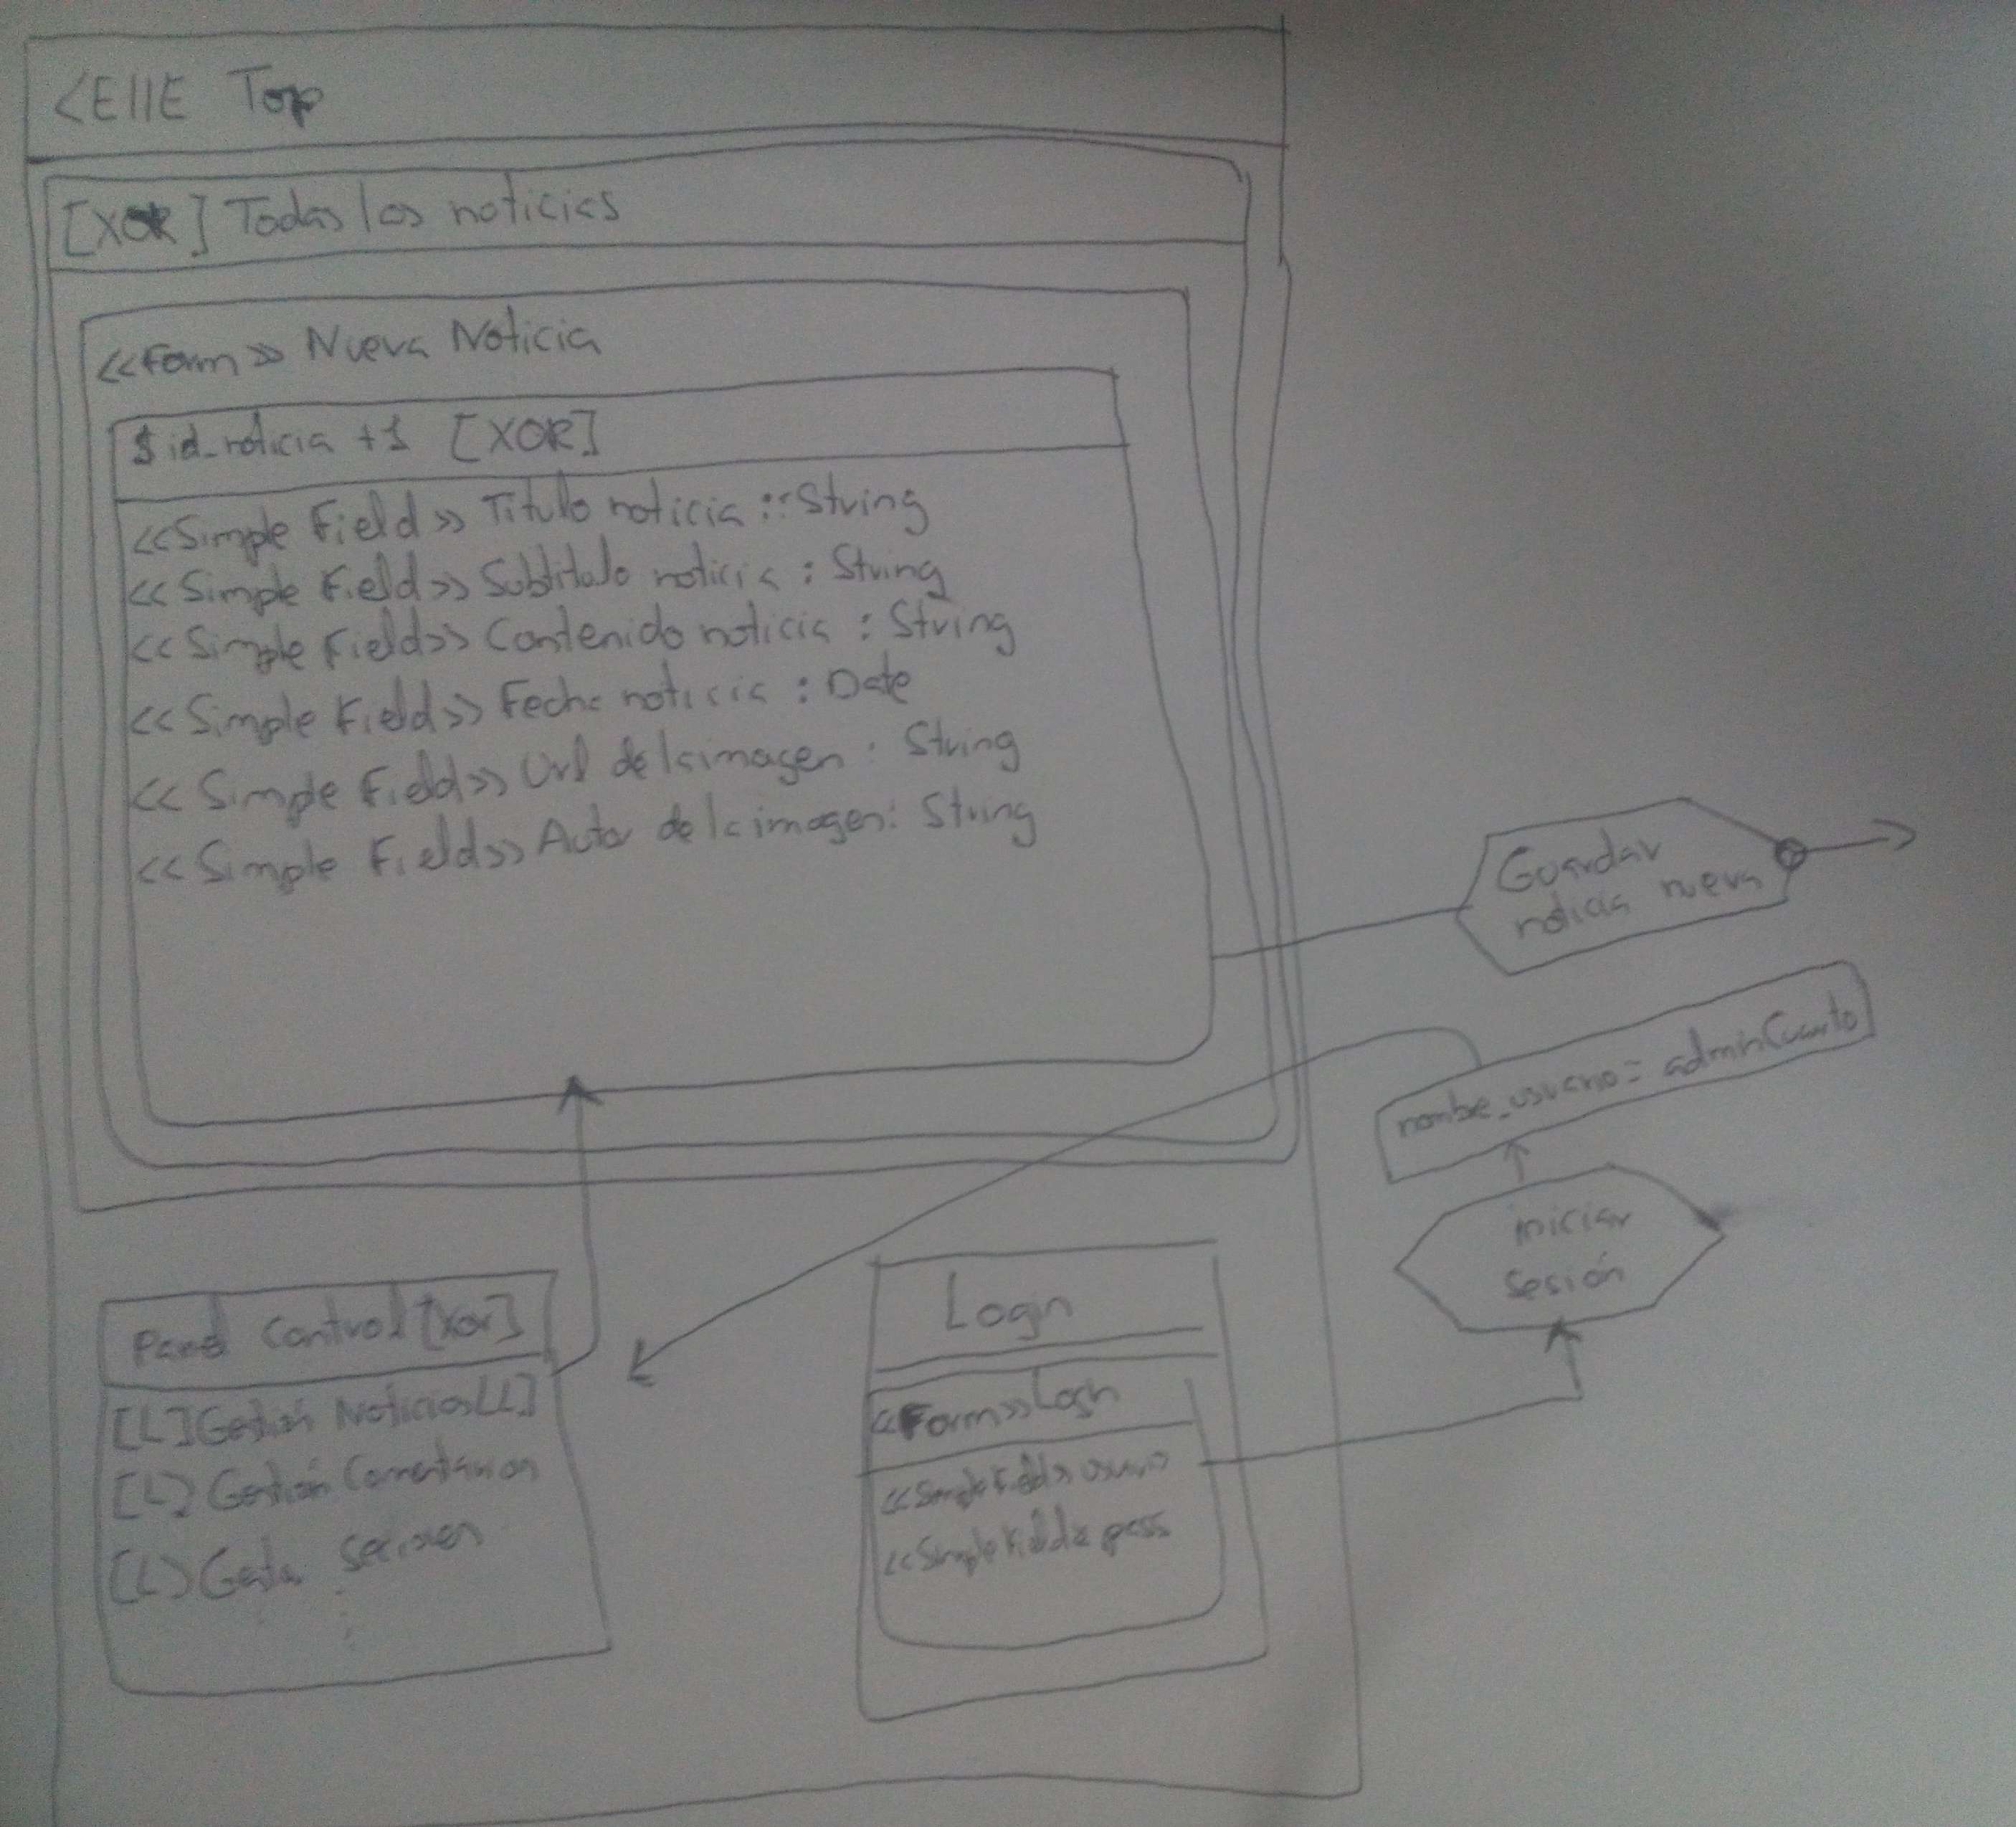 <EllE Top
[XOR] Todas las noticias
<<Form>> Nueva Noticia
$ id_noticia +1 [XOR]
<<Simple Field>> Titulo noticia :: String
<<Simple Field>> Subtitulo noticia : String
<<Simple Field>> Contenido noticia : String
<<Simple Field>> Fecha noticia : Date
<<Simple Field>> Url de la imagen : String
<<Simple Field>> Autor de la imagen: String
Guardar
noticia nueva
nombre_usuario = adminCuarto
iniciar
sesión
Panel Control [Xor]
[L] Gestión Noticias [L]
[L] Gestión Comentarios
[L] Secciones
Login
<<Form>> Login
<<Simple Field>> usuario
<<Simple Field>> pass